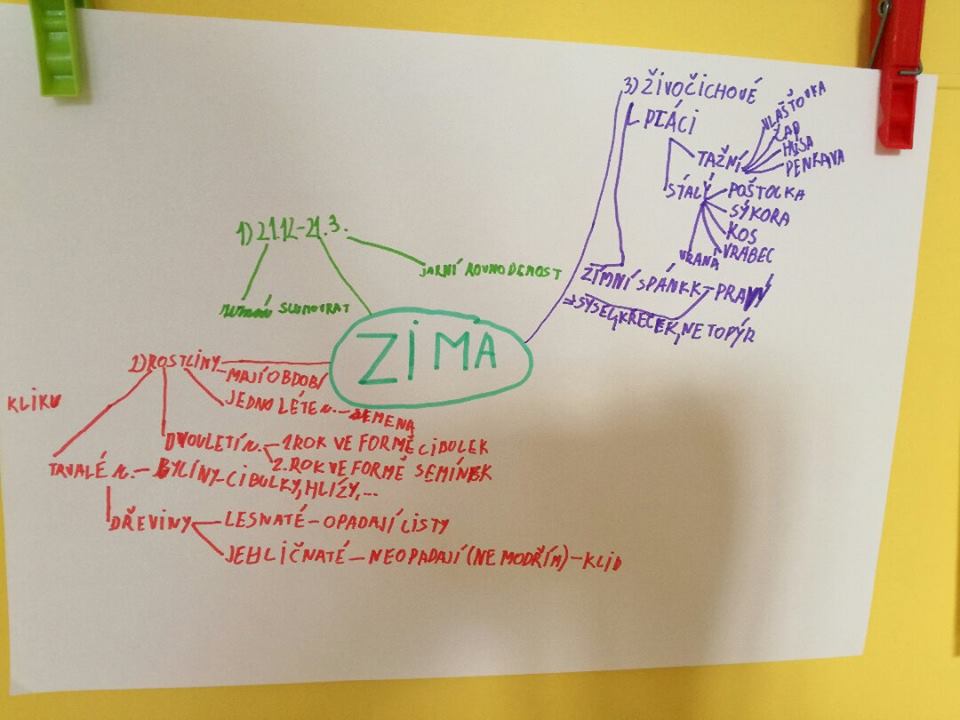 3) ŽIVOČICHOVÉ
PTÁCI
TAŽNÍ
VLAŠŤOVKA
ČÁP
HUSA
PENKAVA
STÁLÝ
POŠTOLKA
SÝKORA
KOS
VRABEC
VRÁNA
ZIMNÍ SPÁNKK - PRAVÝ
→ SYSEL, KŘEČEK, NETOPÝR
1) 21.12 - 21.3.
JARNÍ ROVNODENOST
SLUNOVRAT
ZIMA
2) ROSTLINY
MAJÍ OBDOBÍ
KLIKU
JEDNOLÉTÉ R. - SEMENA
DVOULETÍ R. - 1. ROK VE FORMĚ CIBULEK
2. ROK VE FORMĚ SEMÍNEK
TRVALÉ R. - BYLINY - CIBULKY, HLÍZY, ...
DŘEVINY - LESNATÉ - OPADAJÍ LISTY
JEHLIČNATÉ - NEOPADAJÍ (NE MODŘÍN) - KLID